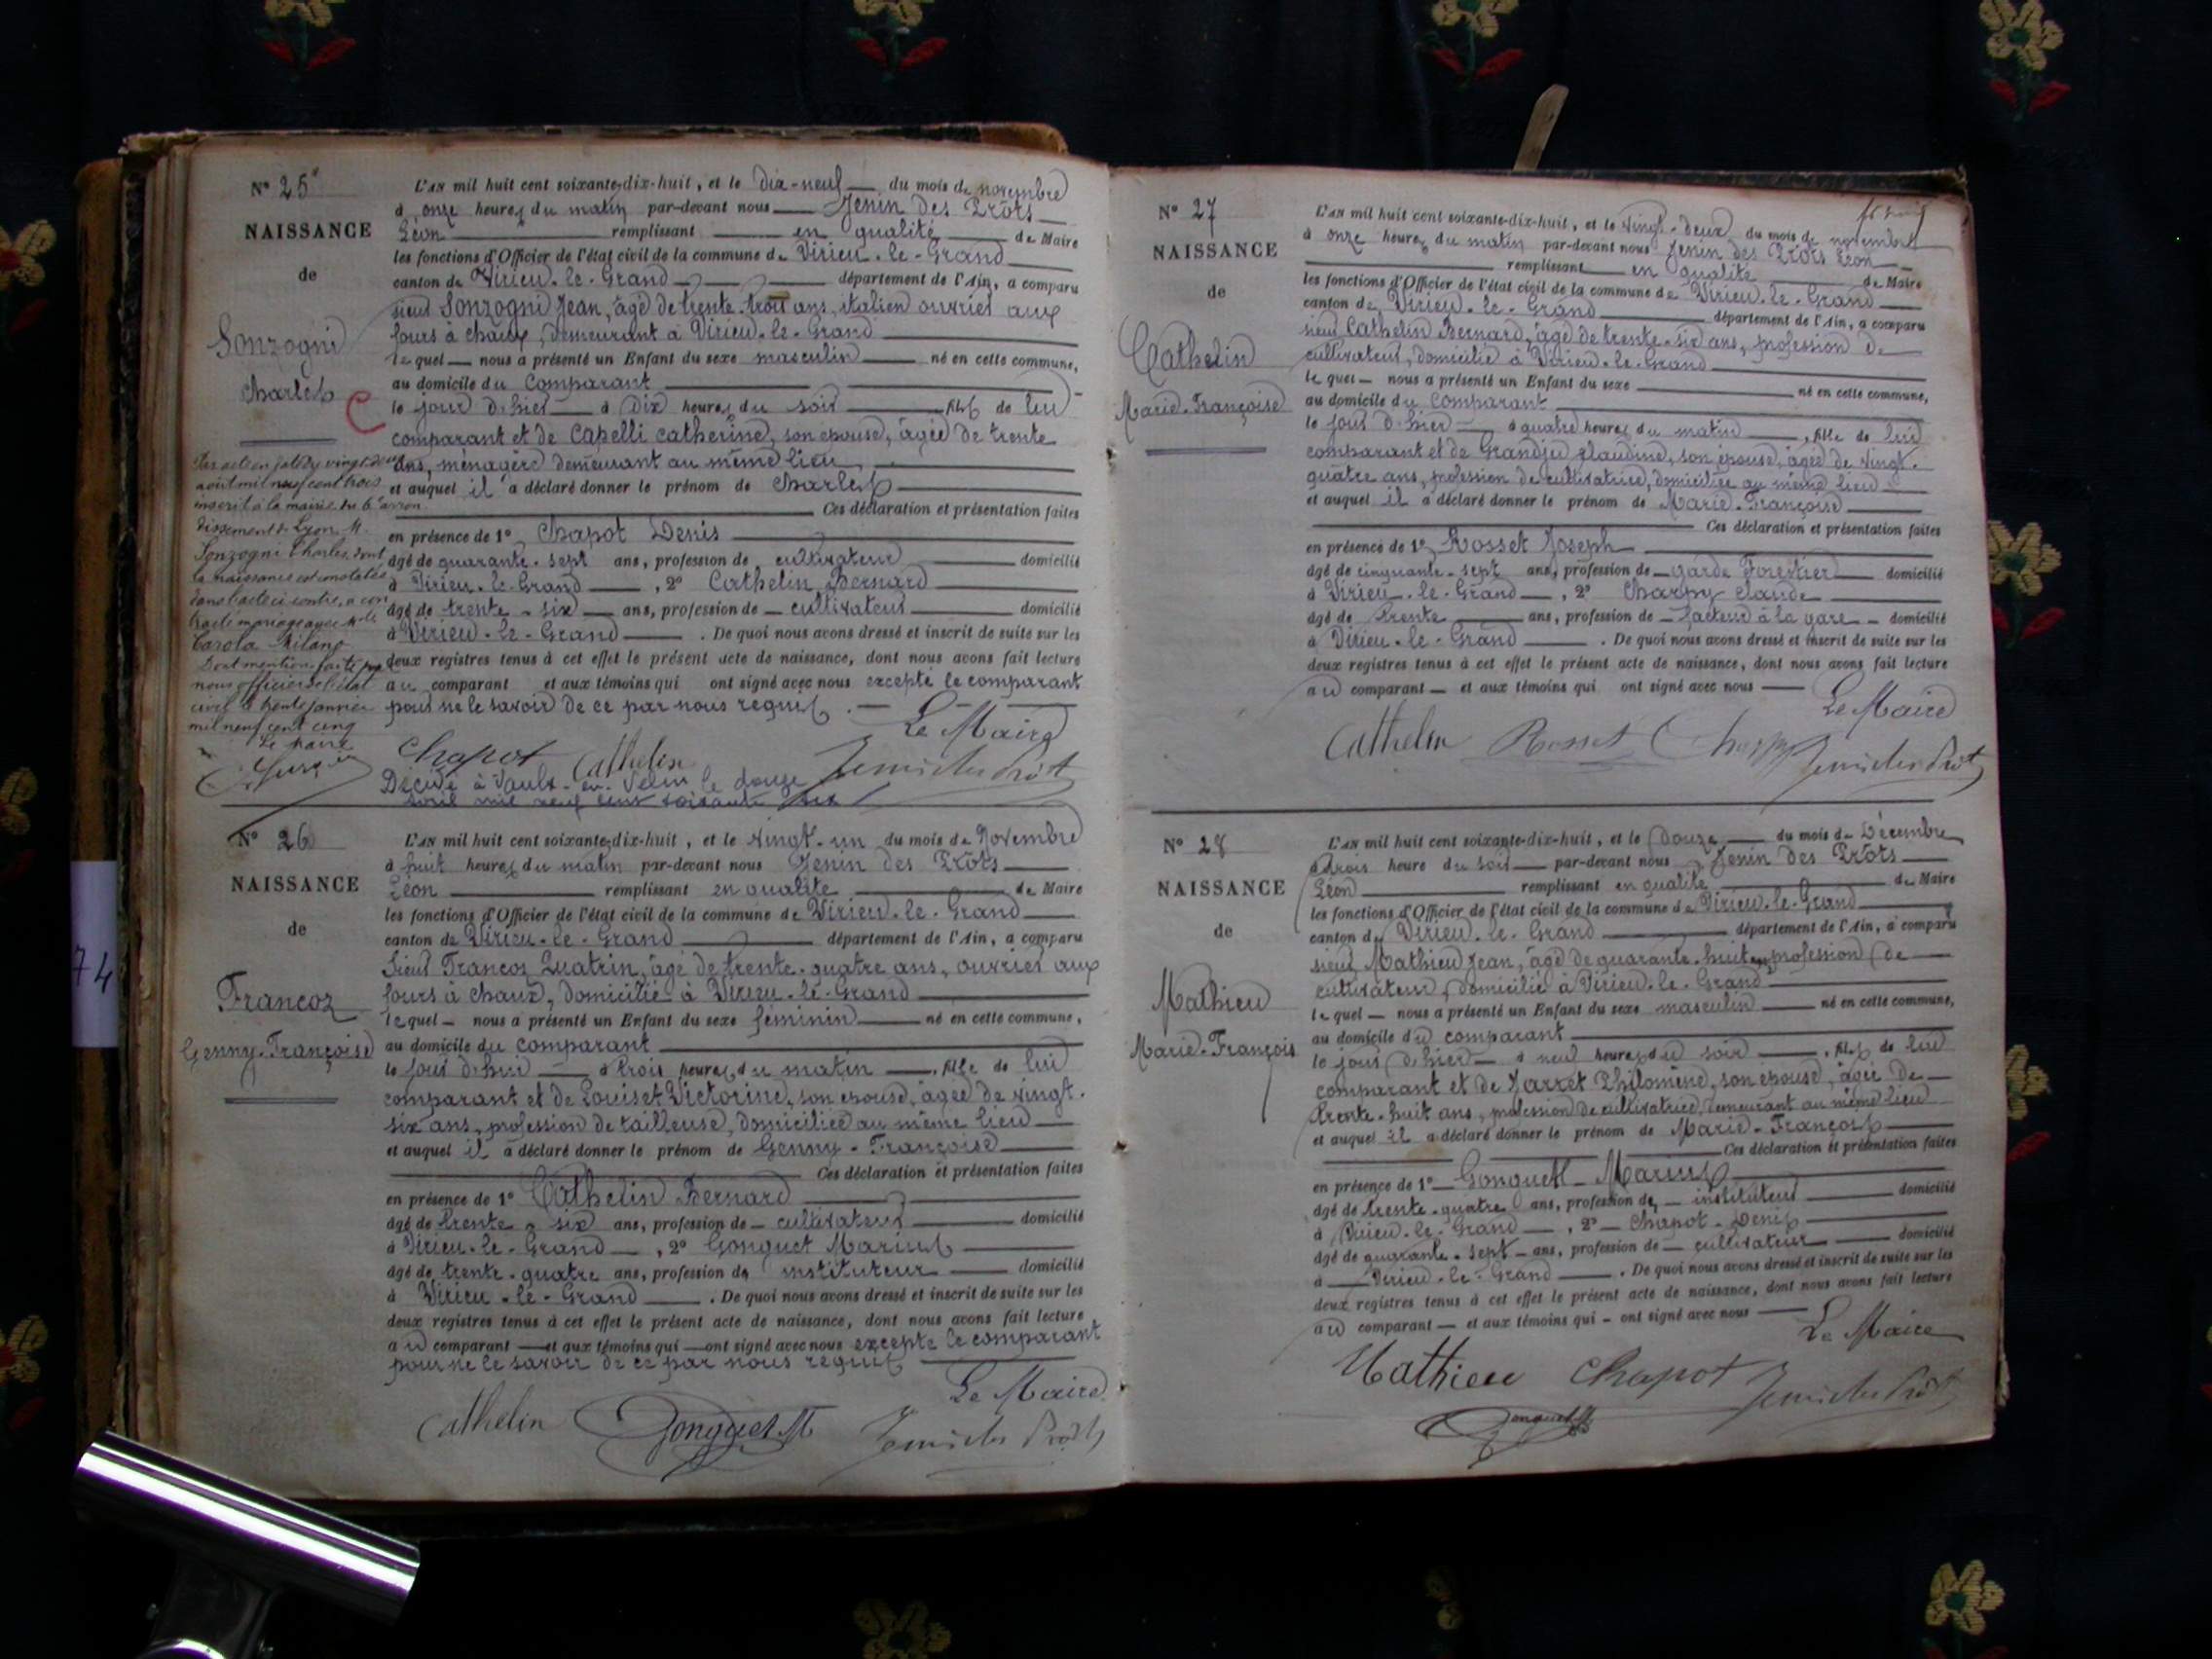 N° 25
NAISSANCE
de
Sonzogni
Charles
C
L'AN mil huit cent soixante-dix-huit, et le dix-neuf du mois de novembre
à onze heures du matin par-devant nous Jenin des Prôts
Léon remplissant en qualité de Maire
les fonctions d'Officier de l'état civil de la commune de Virieu-le-Grand
canton de Virieu-le-Grand département de l'Ain, a comparu
sieur Sonzogni Jean, âgé de trente-trois ans, italien ouvrier aux
fours à chaux, demeurant à Virieu-le-Grand
lequel nous a présenté un Enfant du sexe masculin né en cette commune,
au domicile du comparant
le jour d'hier à dix heures du soir fils de lui
comparant et de Capelli Catherine, son épouse, âgée de trente
ans, ménagère demeurant au même lieu
et auquel il a déclaré donner le prénom de Charles
Ces déclaration et présentation faites
en présence de 1° Chapot Denis
âgé de quarante-sept ans, profession de cultivateur domicilié
à Virieu-le-Grand, 2° Cathelin Bernard
âgé de trente-six ans, profession de cultivateur domicilié
à Virieu-le-Grand. De quoi nous avons dressé et inscrit de suite sur les
deux registres tenus à cet effet le présent acte de naissance, dont nous avons fait lecture
au comparant et aux témoins qui ont signé avec nous excepté le comparant
pour ne le savoir de ce par nous requis.
Le Maire
Chapot Cathelin Jenin des Prôts
Décédé à Vaulx-en-Velin le douze
avril mil neuf cent soixante six
Par acte en date du vingt deux
août mil neuf cent trois
inscrit à la mairie du 6e arron
dissement de Lyon M.
Sonzogni Charles dont
la naissance est constatée
dans l'acte ci contre, a con
tracté mariage avec Melle
Carola Milano
Dont mention faite par
nous officier de l'état
civil le trente janvier
mil neuf cent cinq
Le Maire
N° 26
NAISSANCE
de
Francoz
Genny-Françoise
L'AN mil huit cent soixante-dix-huit, et le vingt-un du mois de Novembre
à huit heures du matin par-devant nous Jenin des Prôts
Léon remplissant en qualité de Maire
les fonctions d'Officier de l'état civil de la commune de Virieu-le-Grand
canton de Virieu-le-Grand département de l'Ain, a comparu
sieur Francoz Quatrin, âgé de trente-quatre ans, ouvrier aux
fours à chaux, domicilié à Virieu-le-Grand
lequel nous a présenté un Enfant du sexe féminin né en cette commune,
au domicile du comparant
le jour d'hier à trois heures du matin, fille de lui
comparant et de Louiset Victorine, son épouse, âgée de vingt-
six ans, profession de tailleuse, domiciliée au même lieu
et auquel il a déclaré donner le prénom de Genny-Françoise
Ces déclaration et présentation faites
en présence de 1° Cathelin Bernard
âgé de trente-six ans, profession de cultivateur domicilié
à Virieu-le-Grand, 2° Gonguet Marius
âgé de trente-quatre ans, profession de instituteur domicilié
à Virieu-le-Grand. De quoi nous avons dressé et inscrit de suite sur les
deux registres tenus à cet effet le présent acte de naissance, dont nous avons fait lecture
au comparant et aux témoins qui ont signé avec nous excepté le comparant
pour ne le savoir de ce par nous requis
Le Maire
Cathelin Gonguet M Jenin des Prôts
74
N° 27
NAISSANCE
de
Cathelin
Marie-Françoise
L'AN mil huit cent soixante-dix-huit, et le vingt-deux du mois de novembre
à onze heures du matin par-devant nous Jenin des Prôts Léon
remplissant en qualité de Maire
les fonctions d'Officier de l'état civil de la commune de Virieu-le-Grand
canton de Virieu-le-Grand département de l'Ain, a comparu
sieur Cathelin Bernard, âgé de trente-six ans, profession de
cultivateur, domicilié à Virieu-le-Grand
lequel nous a présenté un Enfant du sexe né en cette commune,
au domicile du comparant
le jour d'hier à quatre heures du matin, fille de lui
comparant et de Grandju Claudine, son épouse, âgée de vingt-
quatre ans, profession de cultivatrice, domiciliée au même lieu
et auquel il a déclaré donner le prénom de Marie-Françoise
Ces déclaration et présentation faites
en présence de 1° Rosset Joseph
âgé de cinquante-sept ans, profession de garde Forestier domicilié
à Virieu-le-Grand, 2° Charpy Claude
âgé de trente ans, profession de facteur à la gare domicilié
à Virieu-le-Grand. De quoi nous avons dressé et inscrit de suite sur les
deux registres tenus à cet effet le présent acte de naissance, dont nous avons fait lecture
au comparant et aux témoins qui ont signé avec nous
Le Maire
Cathelin Rosset Charpy Jenin des Prôts
N° 28
NAISSANCE
de
Mathieu
Marie-François
L'AN mil huit cent soixante-dix-huit, et le douze du mois de Décembre
à trois heure du soir par-devant nous Jenin des Prôts
Léon remplissant en qualité de Maire
les fonctions d'Officier de l'état civil de la commune de Virieu-le-Grand
canton de Virieu-le-Grand département de l'Ain, a comparu
sieur Mathieu Jean, âgé de quarante-huit ans, profession de
cultivateur, domicilié à Virieu-le-Grand
lequel nous a présenté un Enfant du sexe masculin né en cette commune,
au domicile du comparant
le jour d'hier à neuf heures du soir, fils de lui
comparant et de Jarret Philomène, son épouse, âgée de
trente-huit ans, profession de cultivatrice, demeurant au même lieu
et auquel il a déclaré donner le prénom de Marie-François
Ces déclaration et présentation faites
en présence de 1° Gonguet Marius
âgé de trente-quatre ans, profession de instituteur domicilié
à Virieu-le-Grand, 2° Chapot Denis
âgé de quarante-sept ans, profession de cultivateur domicilié
à Virieu-le-Grand. De quoi nous avons dressé et inscrit de suite sur les
deux registres tenus à cet effet le présent acte de naissance, dont nous avons fait lecture
au comparant et aux témoins qui ont signé avec nous
Le Maire
Mathieu Chapot Jenin des Prôts
Gonguet M